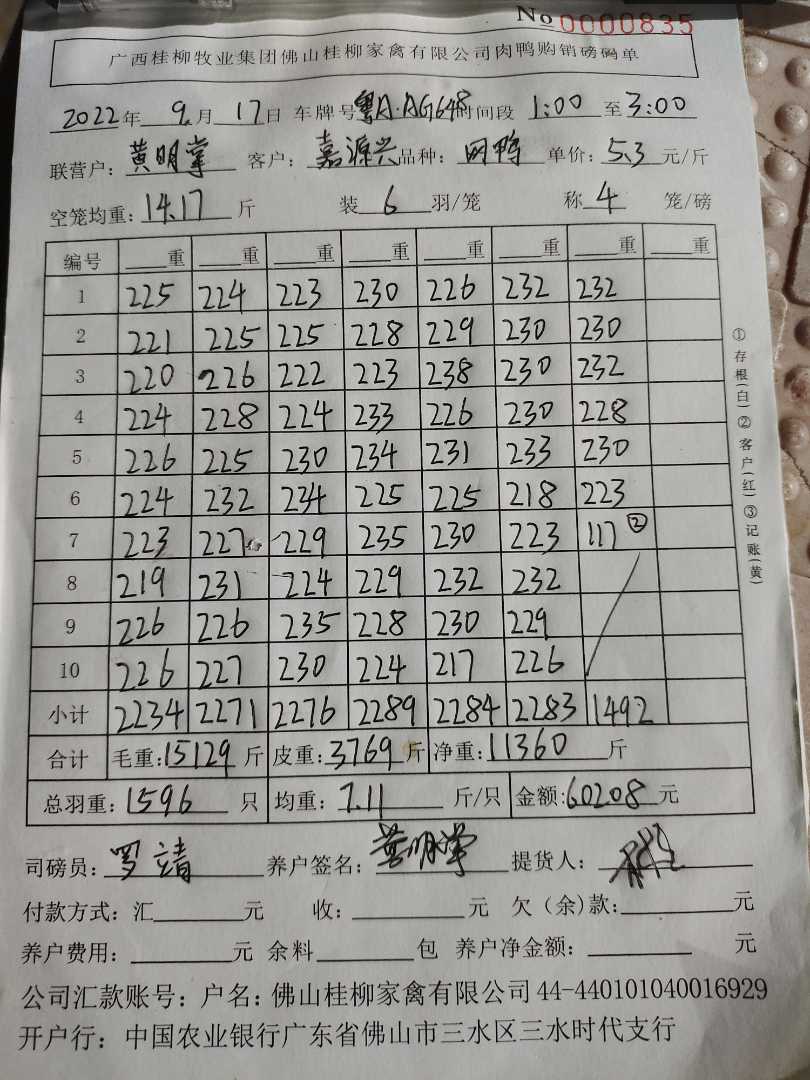 No 0000835
广西桂柳牧业集团佛山桂柳家禽有限公司肉鸭购销磅码单
2022年 9月 17日 车牌号粤A·AG648时间段 1:00 至 3:00
联营户: 黄明掌 客户: 嘉源兴 品种: 网鸭 单价: 5.3 元/斤
空笼均重: 14.17 斤 装 6 羽/笼 称 4 笼/磅
编号 重 重 重 重 重 重 重 重
1 225 224 223 230 226 232 232
2 221 225 225 228 229 230 230
3 220 226 222 223 238 230 232
4 224 228 224 233 226 230 228
5 226 225 230 234 231 233 230
6 224 232 234 225 225 218 223
7 223 227 229 235 230 223 117 ②
8 219 231 224 229 232 232
9 226 226 235 228 230 229
10 226 227 230 224 217 226
小计 2234 2271 2276 2289 2284 2283 1492
合计 毛重:15129 斤 皮重:3769 斤 净重:11360 斤
总羽重: 1596 只 均重: 7.11 斤/只 金额:60208 元
①存根(白)②客户(红)③记账(黄)
司磅员: 罗靖 养户签名: 黄明掌 提货人:
付款方式: 汇 元 收: 元 欠(余)款: 元
养户费用: 元 余料 包 养户净金额: 元
公司汇款账号: 户名: 佛山桂柳家禽有限公司 44-440101040016929
开户行: 中国农业银行广东省佛山市三水区三水时代支行